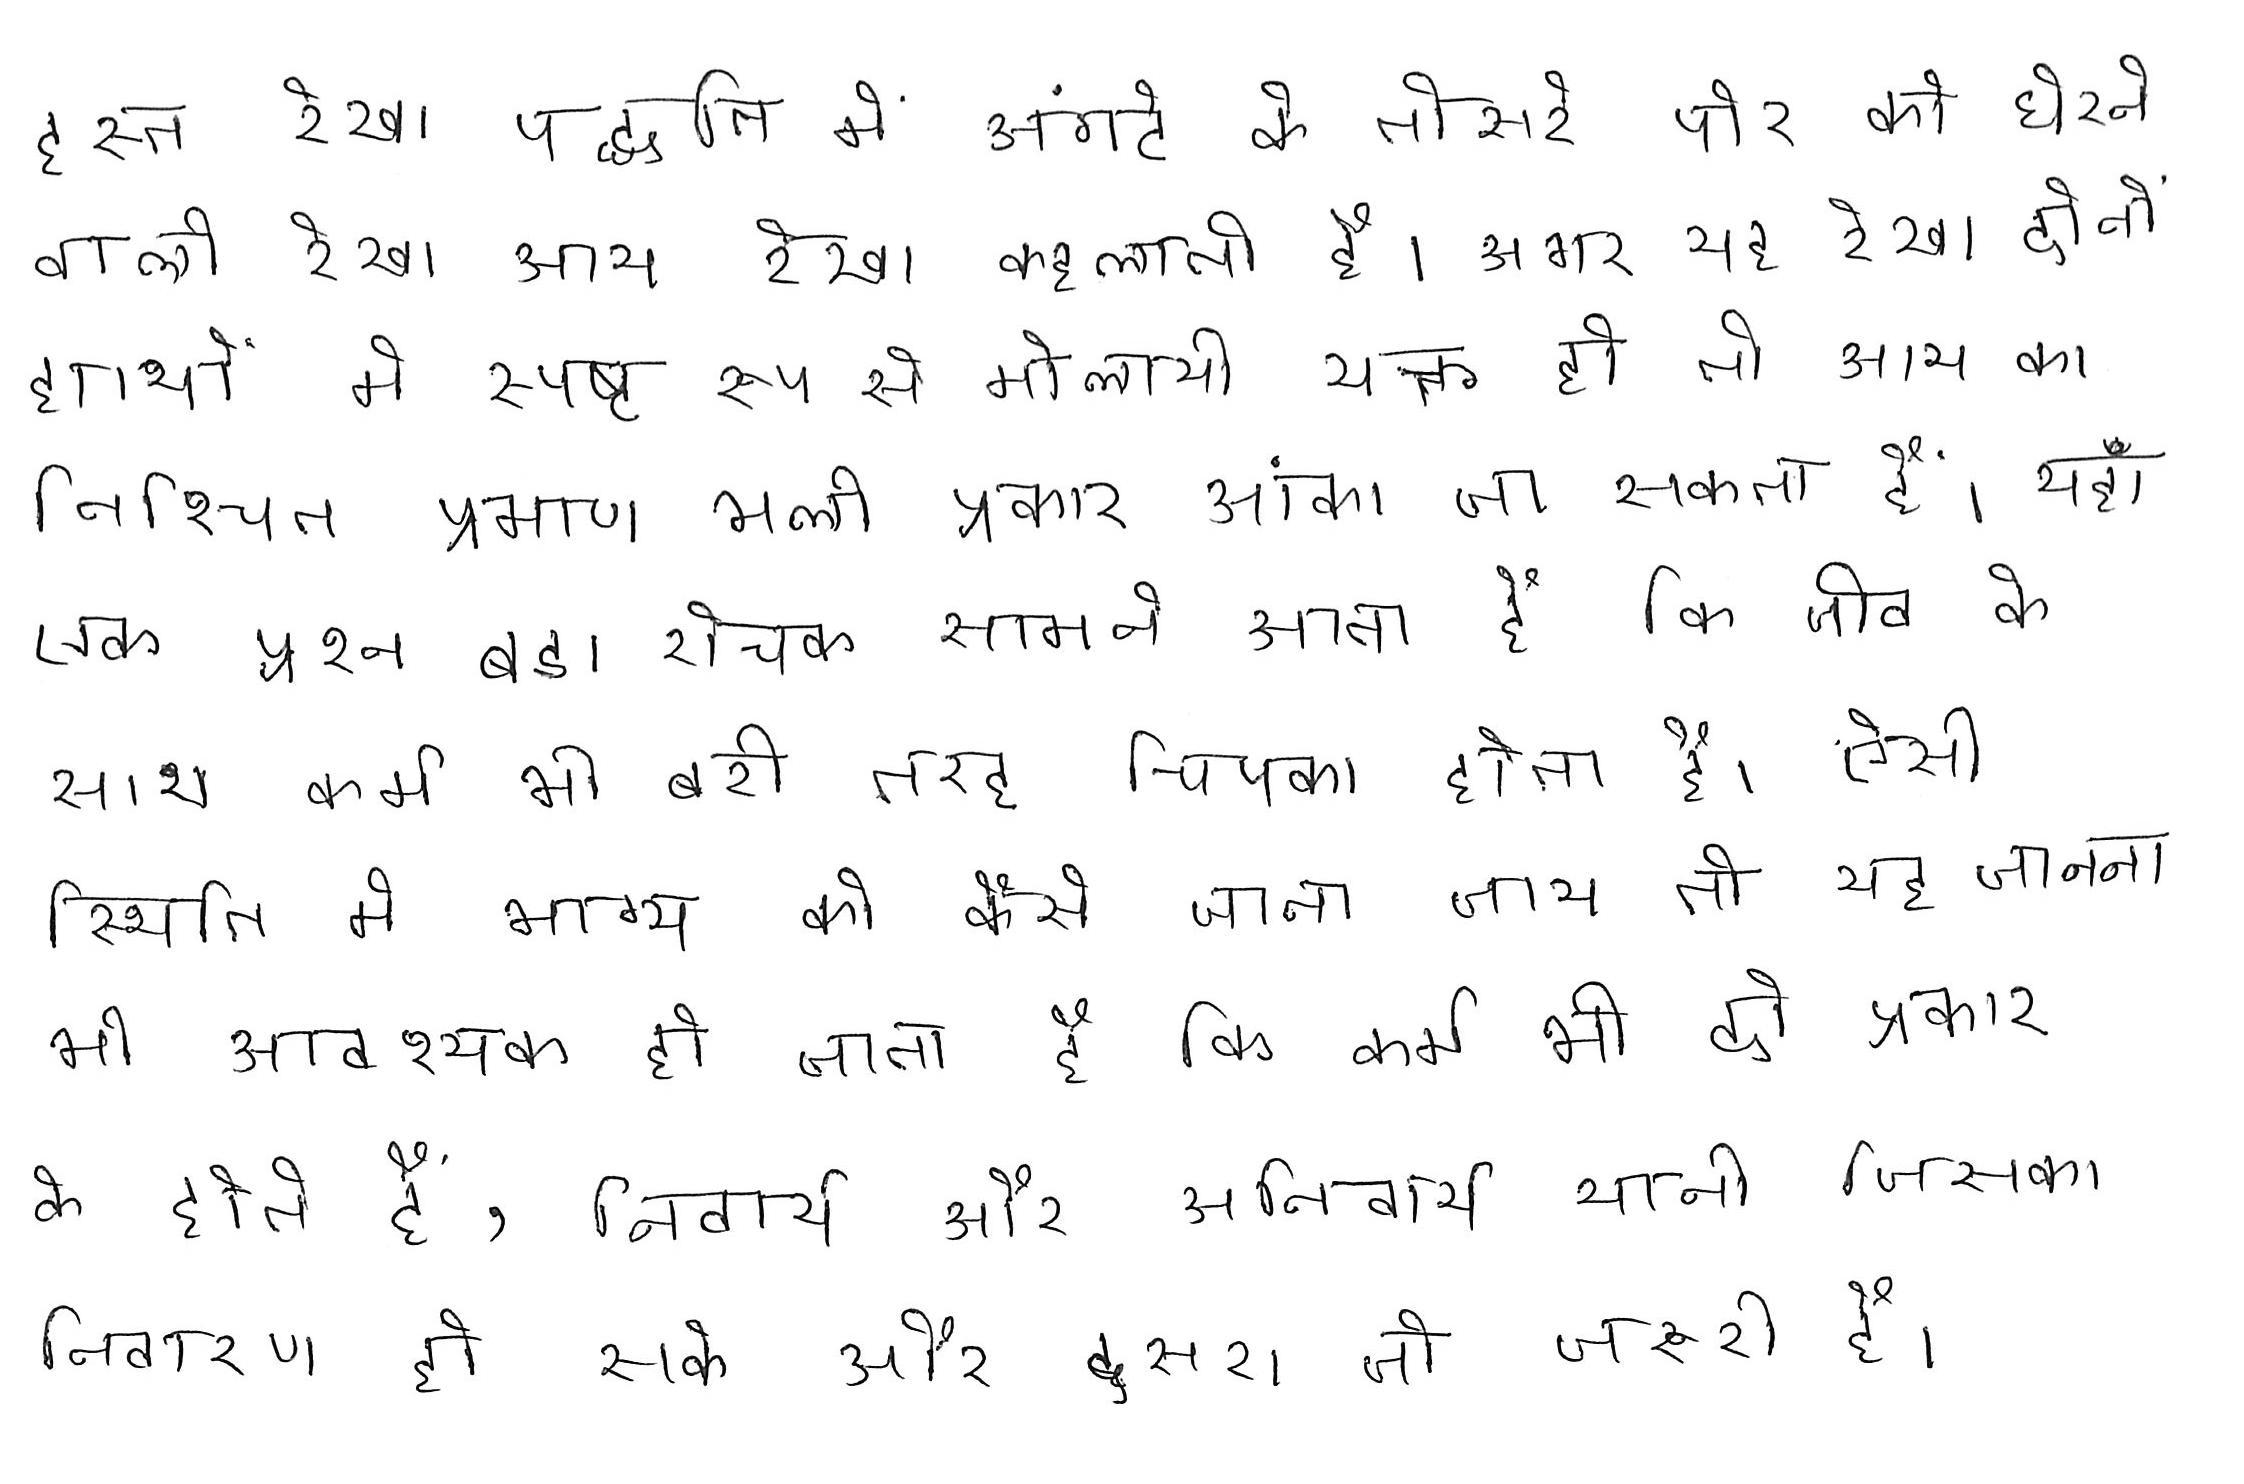 हस्त रेखा पद्धति में अंगटे के तीसरे पोर को घेरने
वाली रेखा आय रेखा कहलाती है। अगर यह रेखा दोनों
हाथों मे स्पष्ट रूप से मोलायी यक्त हो तो आय का
निश्चित प्रमाण भली प्रकार आंका जा सकता हैं। यहाँ
एक प्रश्न बडा रोचक सामने आता है कि जीव के
साथ कर्म भी बरी तरह चिपका होता है। ऐसी
स्थिति मे भाग्य को कैसे जाना जाय तो यह जानना
भी आवश्यक हो जाता है कि कर्म भी दो प्रकार
के होते हैं, निवार्य और अनिवार्य यानी जिसका
निवारण हो सके और दुसरा जो जरूरी है।